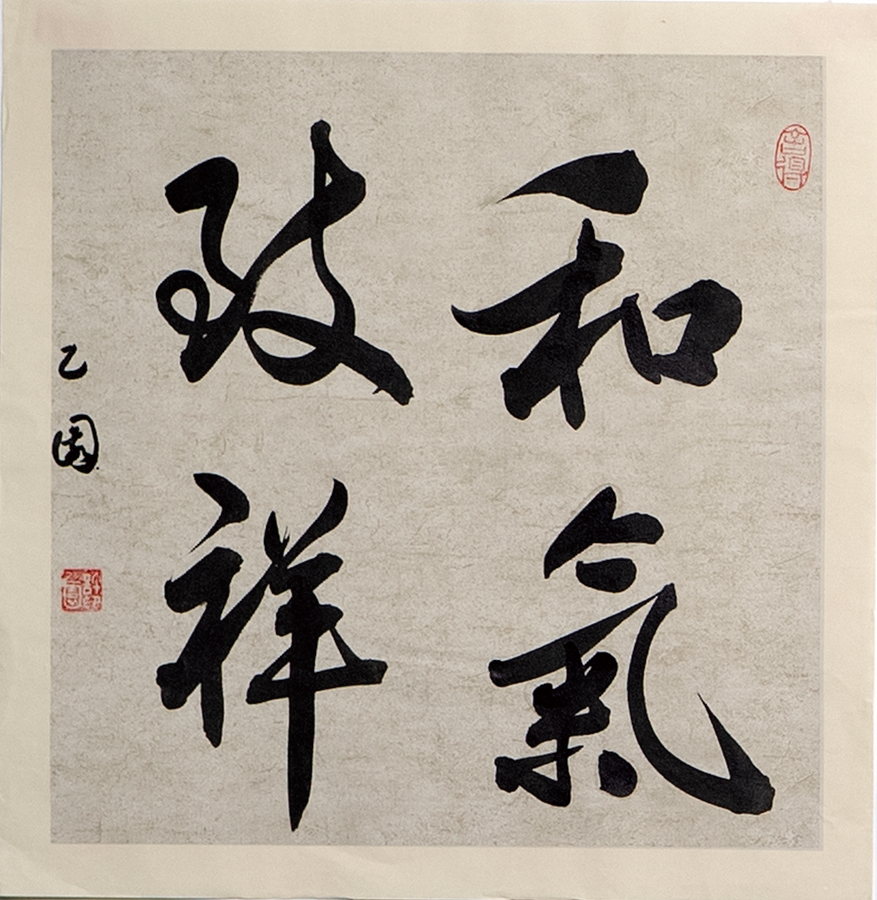 和氣
致祥
乙園